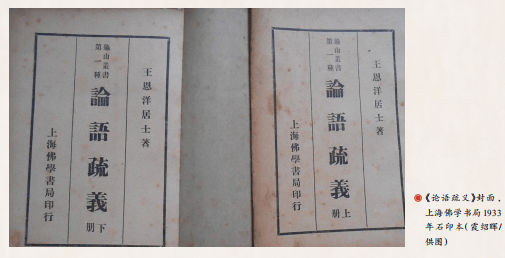 王恩洋居士著
龜山叢書
第一種
論語疏義
上册
上海佛學書局印行
王恩洋居士著
龜山叢書
第一種
論語疏義
下册
上海佛學書局印行
《论语疏义》封面，
上海佛学书局1933
年石印本(霞绍晖/
供图)